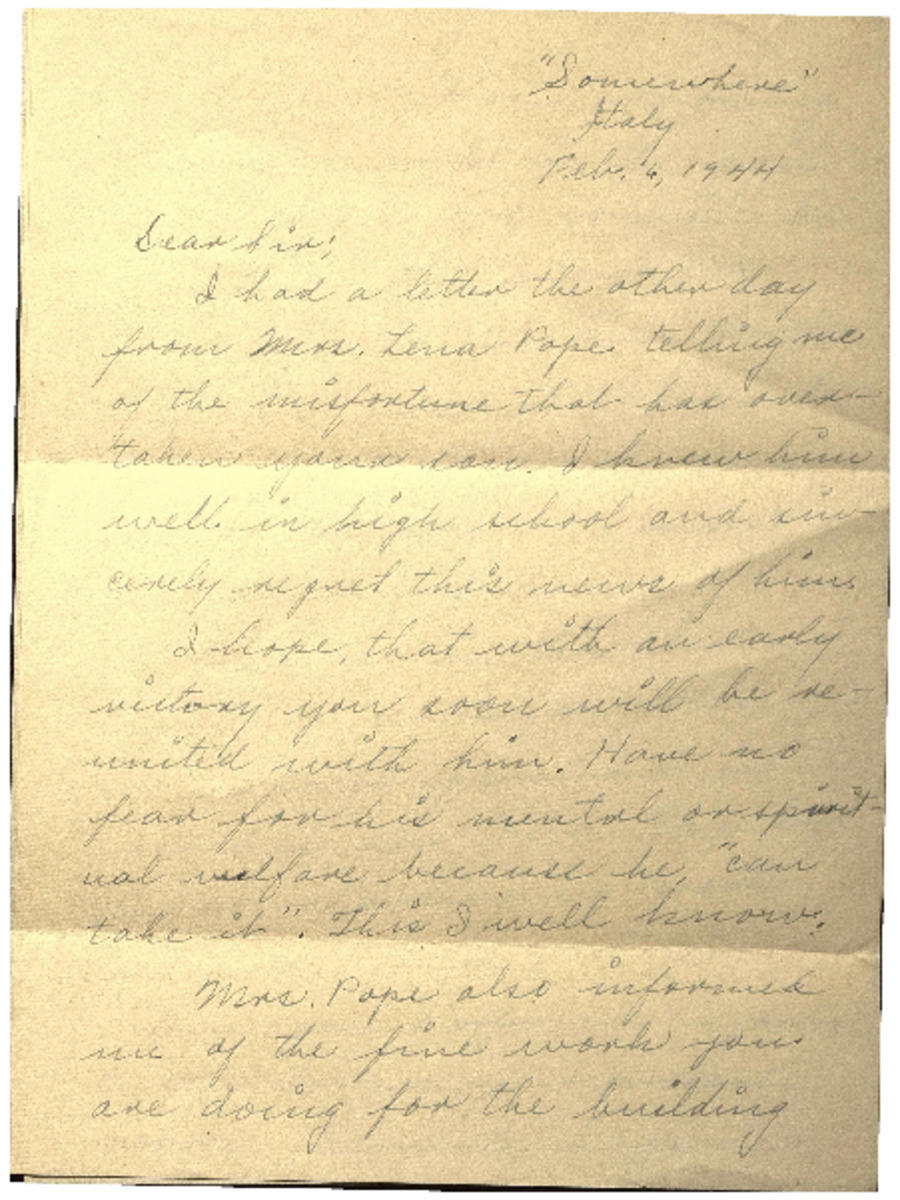 "Somewhere"
Italy
Feb. 6, 1944
Dear Sir;
I had a letter the other day
from Mrs. Lena Pope telling me
of the misfortune that has over-
taken your son. I knew him
well in high school and sin-
cerely regret this news of him.
I hope, that with an early
victory you soon will be re-
united with him. Have no
fear for his mental or spirit-
ual welfare because he, "can
take it". This I well know.
Mrs. Pope also informed
me of the fine work you
are doing for the building